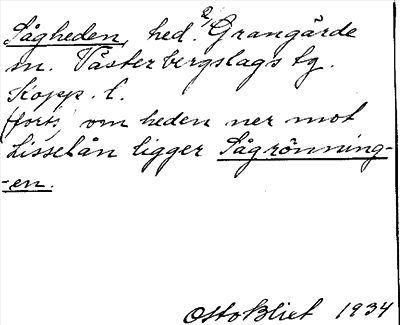 Sågheden, hed. Grangärde
sn. Västerbergslags tg.
Kopp. l.
(forts) om heden ner mot
Lisselån ligger Sågrönning-
-en.
Otto Blixt 1934